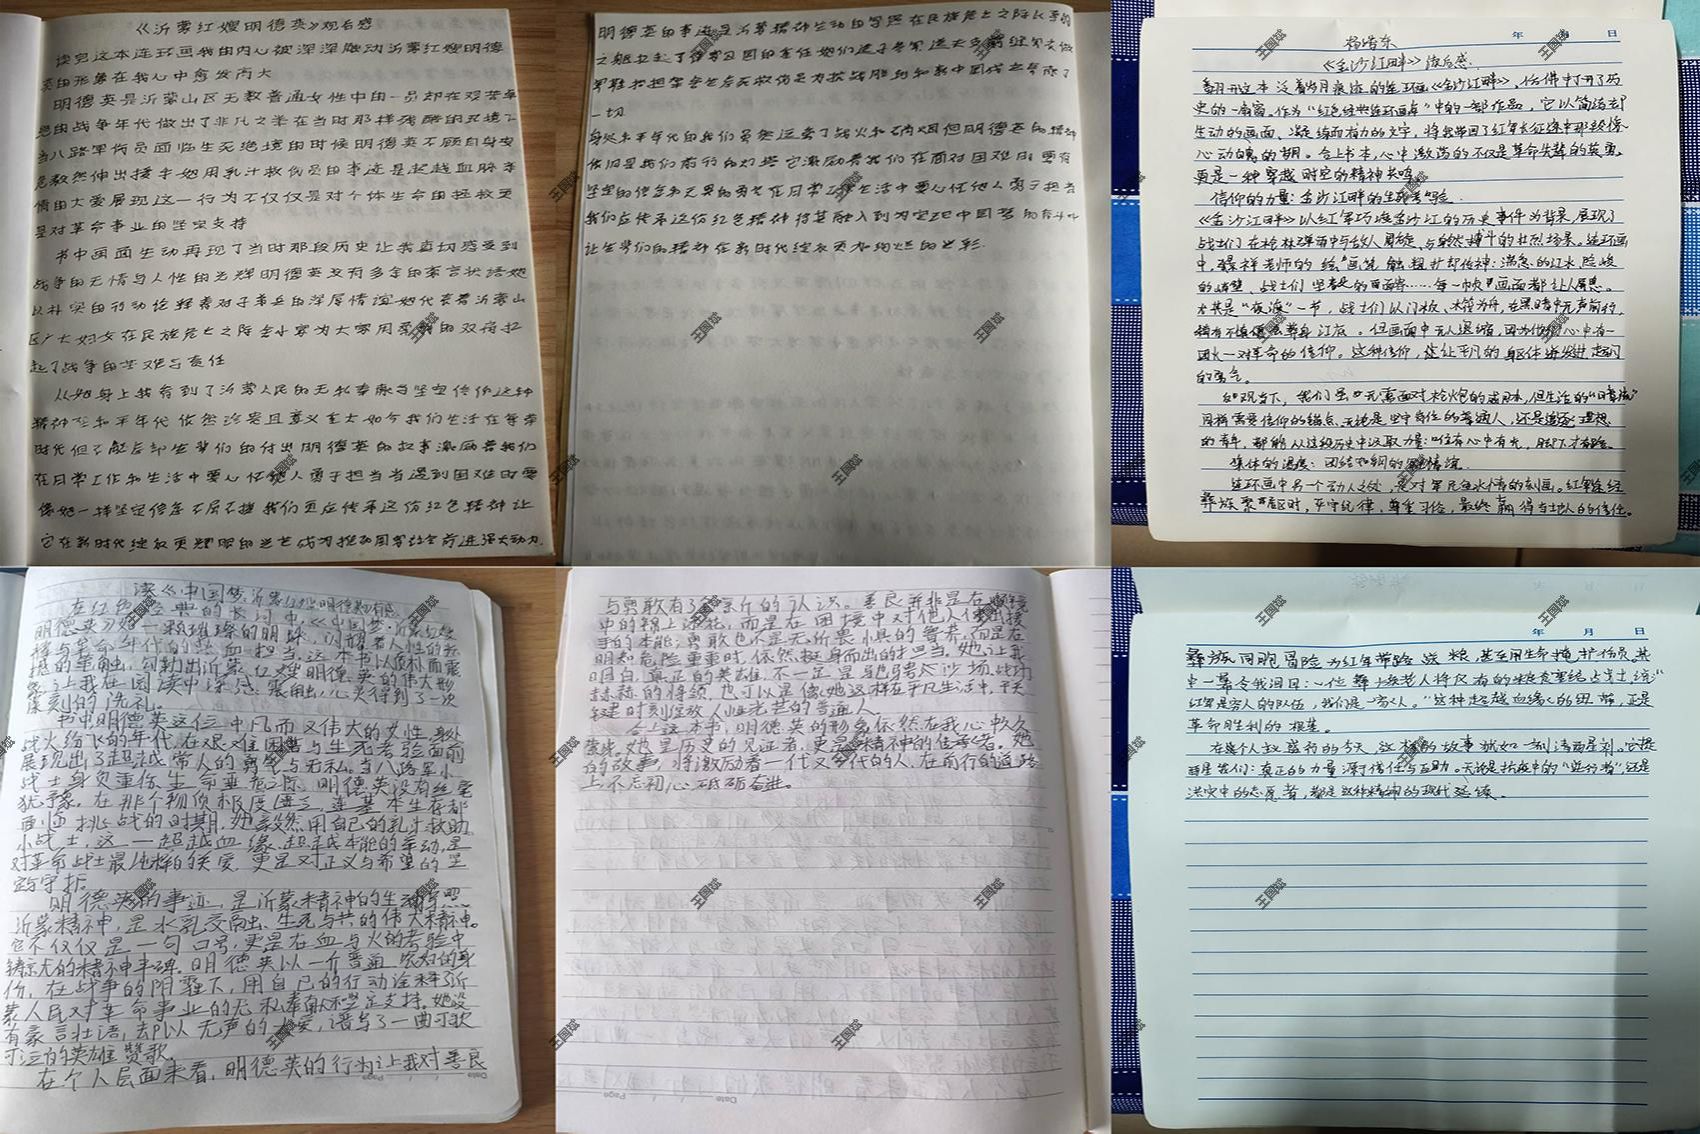 《沂蒙红嫂明德英》观后感
读完这本连环画我的内心被深深触动沂蒙红嫂明德
英的形象在我心中愈发高大
明德英是沂蒙山区无数普通女性中的一员却在艰苦卓
绝的战争年代做出了非凡之举在当时那样残酷的环境下
当八路军伤员面临生死绝境的时候明德英不顾自身安
危毅然伸出援手她用乳汁救伤员的事迹是超越血脉亲
情的大爱展现这一行为不仅仅是对个体生命的拯救更
是对革命事业的坚定支持
书中画面生动再现了当时那段历史让我真切感受到
战争的无情与人性的光辉明德英没有多余的豪言壮语她
以朴实的行动诠释着对子弟兵的深厚情谊她代表着沂蒙山
区广大妇女在民族危亡之际舍小家为大家用柔弱的双肩扛
起了战争的苦难与责任
从她身上我看到了沂蒙人民的无私奉献与坚定信仰这种
精神在和平年代依然珍贵且意义重大如今我们生活在繁荣
时代但不能忘却先辈们的付出明德英的故事激励着我们
在日常工作和生活中要心怀他人勇于担当当遇到困难时要
像她一样坚定信念不屈不挠我们更应传承这份红色精神让
它在新时代绽放更耀眼的光芒成为推动国家社会前进强大动力
明德英的事迹是沂蒙精神生动的写照在民族危亡之际以柔弱
之躯扛起了保家卫国的重任她们送子参军送夫支前缝军衣做
军鞋抬担架舍生忘死救伤员为抗战胜利和新中国成立奉献了
一切
身处和平年代的我们虽然远离了战火和硝烟但明德英的精神
依旧是我们前行的灯塔它激励着我们在面对困难时更有
坚定的信念和无畏的勇气在日常工作生活中要心怀他人勇于担当
我们应传承这份红色精神将其融入到为实现中国梦的奋斗中
让先辈们的精神在新时代绽放更加绚烂的光彩.
杨浩东
年 月 日
《金沙江畔》读后感.
翻开这本泛着岁月痕迹的连环画《金沙江畔》，仿佛中打开了历
史的一扇窗。作为“红色经典连环画库”中的一部作品，它以简练却
生动的画面、凝练而有力的文字，将我带回了红军长征途中那段惊
心动魄的时期。合上书本，心中激荡的不仅是革命先辈的英勇，
更是一种穿越时空的精神共鸣
信仰的力量：金沙江畔的生死考验.
《金沙江畔》以红军巧渡金沙江的历史事件为背景，展现了
战士们在枪林弹雨中与敌人周旋、与自然搏斗的壮烈场景。连环画
中，老师的绘画笔触粗犷却传神：湍急的江水，险峻
的峭壁、战士们坚毅的面容……每一帧画面都让人屏息。
尤其是“夜渡”一节，战士们以门板、木筏为舟，在黑暗中无声前行，
稍有不慎便葬身江底。但画面中无人退缩，因为他们心中有一
团火—对革命的信仰。这种信仰，能让平凡的躯体迸发出超凡
的勇气。
如观当下，我们虽无需面对枪炮的威胁，但生活的“”
同样需要信仰的锚点，无论是坚守岗位的普通人，还是追逐理想
的青年，都能从这段历史中汲取力量：唯有心中有光，脚下才有路。
集体的温度：团结如钢的军民情谊.
连环画中另一个动人之处，是对军民鱼水情的刻画。红军途经
彝族聚居区时，严守纪律，尊重习俗，最终赢得当地人的信任。
读《中国梦.沂蒙红嫂明德英》有感
在红色经典的长河中，《中国梦·沂蒙红嫂
明德英》如一颗璀璨的明珠，闪耀着人性的光
辉与革命年代的热血担当。这本书以质朴而震
撼的笔触，勾勒出沂蒙红嫂明德英的伟大形
象，让我在阅读中深感震撼，心灵得到了一次
深刻的洗礼。
书中明德英这位平凡而又伟大的女性，身处
战火纷飞的年代，在艰难困苦与生死考验面前
展现出了超越常人的勇气与无私。当八路军小
战士身负重伤、生命垂危之际，明德英没有丝毫
犹豫。在那个物资极度匮乏，连基本生存都
面临挑战的时期，她毅然用自己的乳汁救助
小战士，这一超越血缘、超越本能的举动，是
对革命战士最纯粹的关爱，更是对正义与希望的坚
定守护。
明德英的事迹，是沂蒙精神的生动写照
沂蒙精神，是水乳交融、生死与共的伟大精神。
它不仅仅是一句口号，更是在血与火的考验中
铸就的精神丰碑。明德英以一个普通农妇的身
份，在战争的阴霾下，用自己的行动诠释了沂
蒙人民对革命事业的无私奉献和坚定支持。她没
有豪言壮语，却以无声的大爱，谱写了一曲可歌
可泣的英雄赞歌。
在个人层面来看，明德英的行为让我对善良
Date Page
与勇敢有了全新的认识。善良并非是在顺境
中的锦上添花，而是在困境中对他人伸出援
手的本能；勇敢也不是无所畏惧的鲁莽，而是在
明知危险重重时，依然挺身而出的担当。她让我
明白，真正的英雄，不一定是驰骋沙场、战功
赫赫的将领，也可以是像她这样在平凡生活中，于关
键时刻绽放人性光芒的普通人。
合上这本书，明德英的形象依然在我心中久久
萦绕。她是历史的见证者，更是精神的传承者。她
的故事，将激励着一代又一代的人，在前行的道路
上不忘初心，砥砺奋进。
年 月 日
彝族同胞冒险为红军带路、送粮，甚至用生命掩护伤员。其
中一幕令我泪目：一位彝族老人将仅有的粮食塞给战士，说：“
红军是穷人的队伍，我们是一家人。”这种超越血缘的纽带，正是
革命胜利的根基。
在个人主义盛行的今天，这样的故事犹如一剂清醒剂。它提
醒着我们：真正的力量源于信任与互助。无论是抗疫中的“逆行者”，还是
洪灾中的志愿者，都是这种精神的现代延续。
王国斌